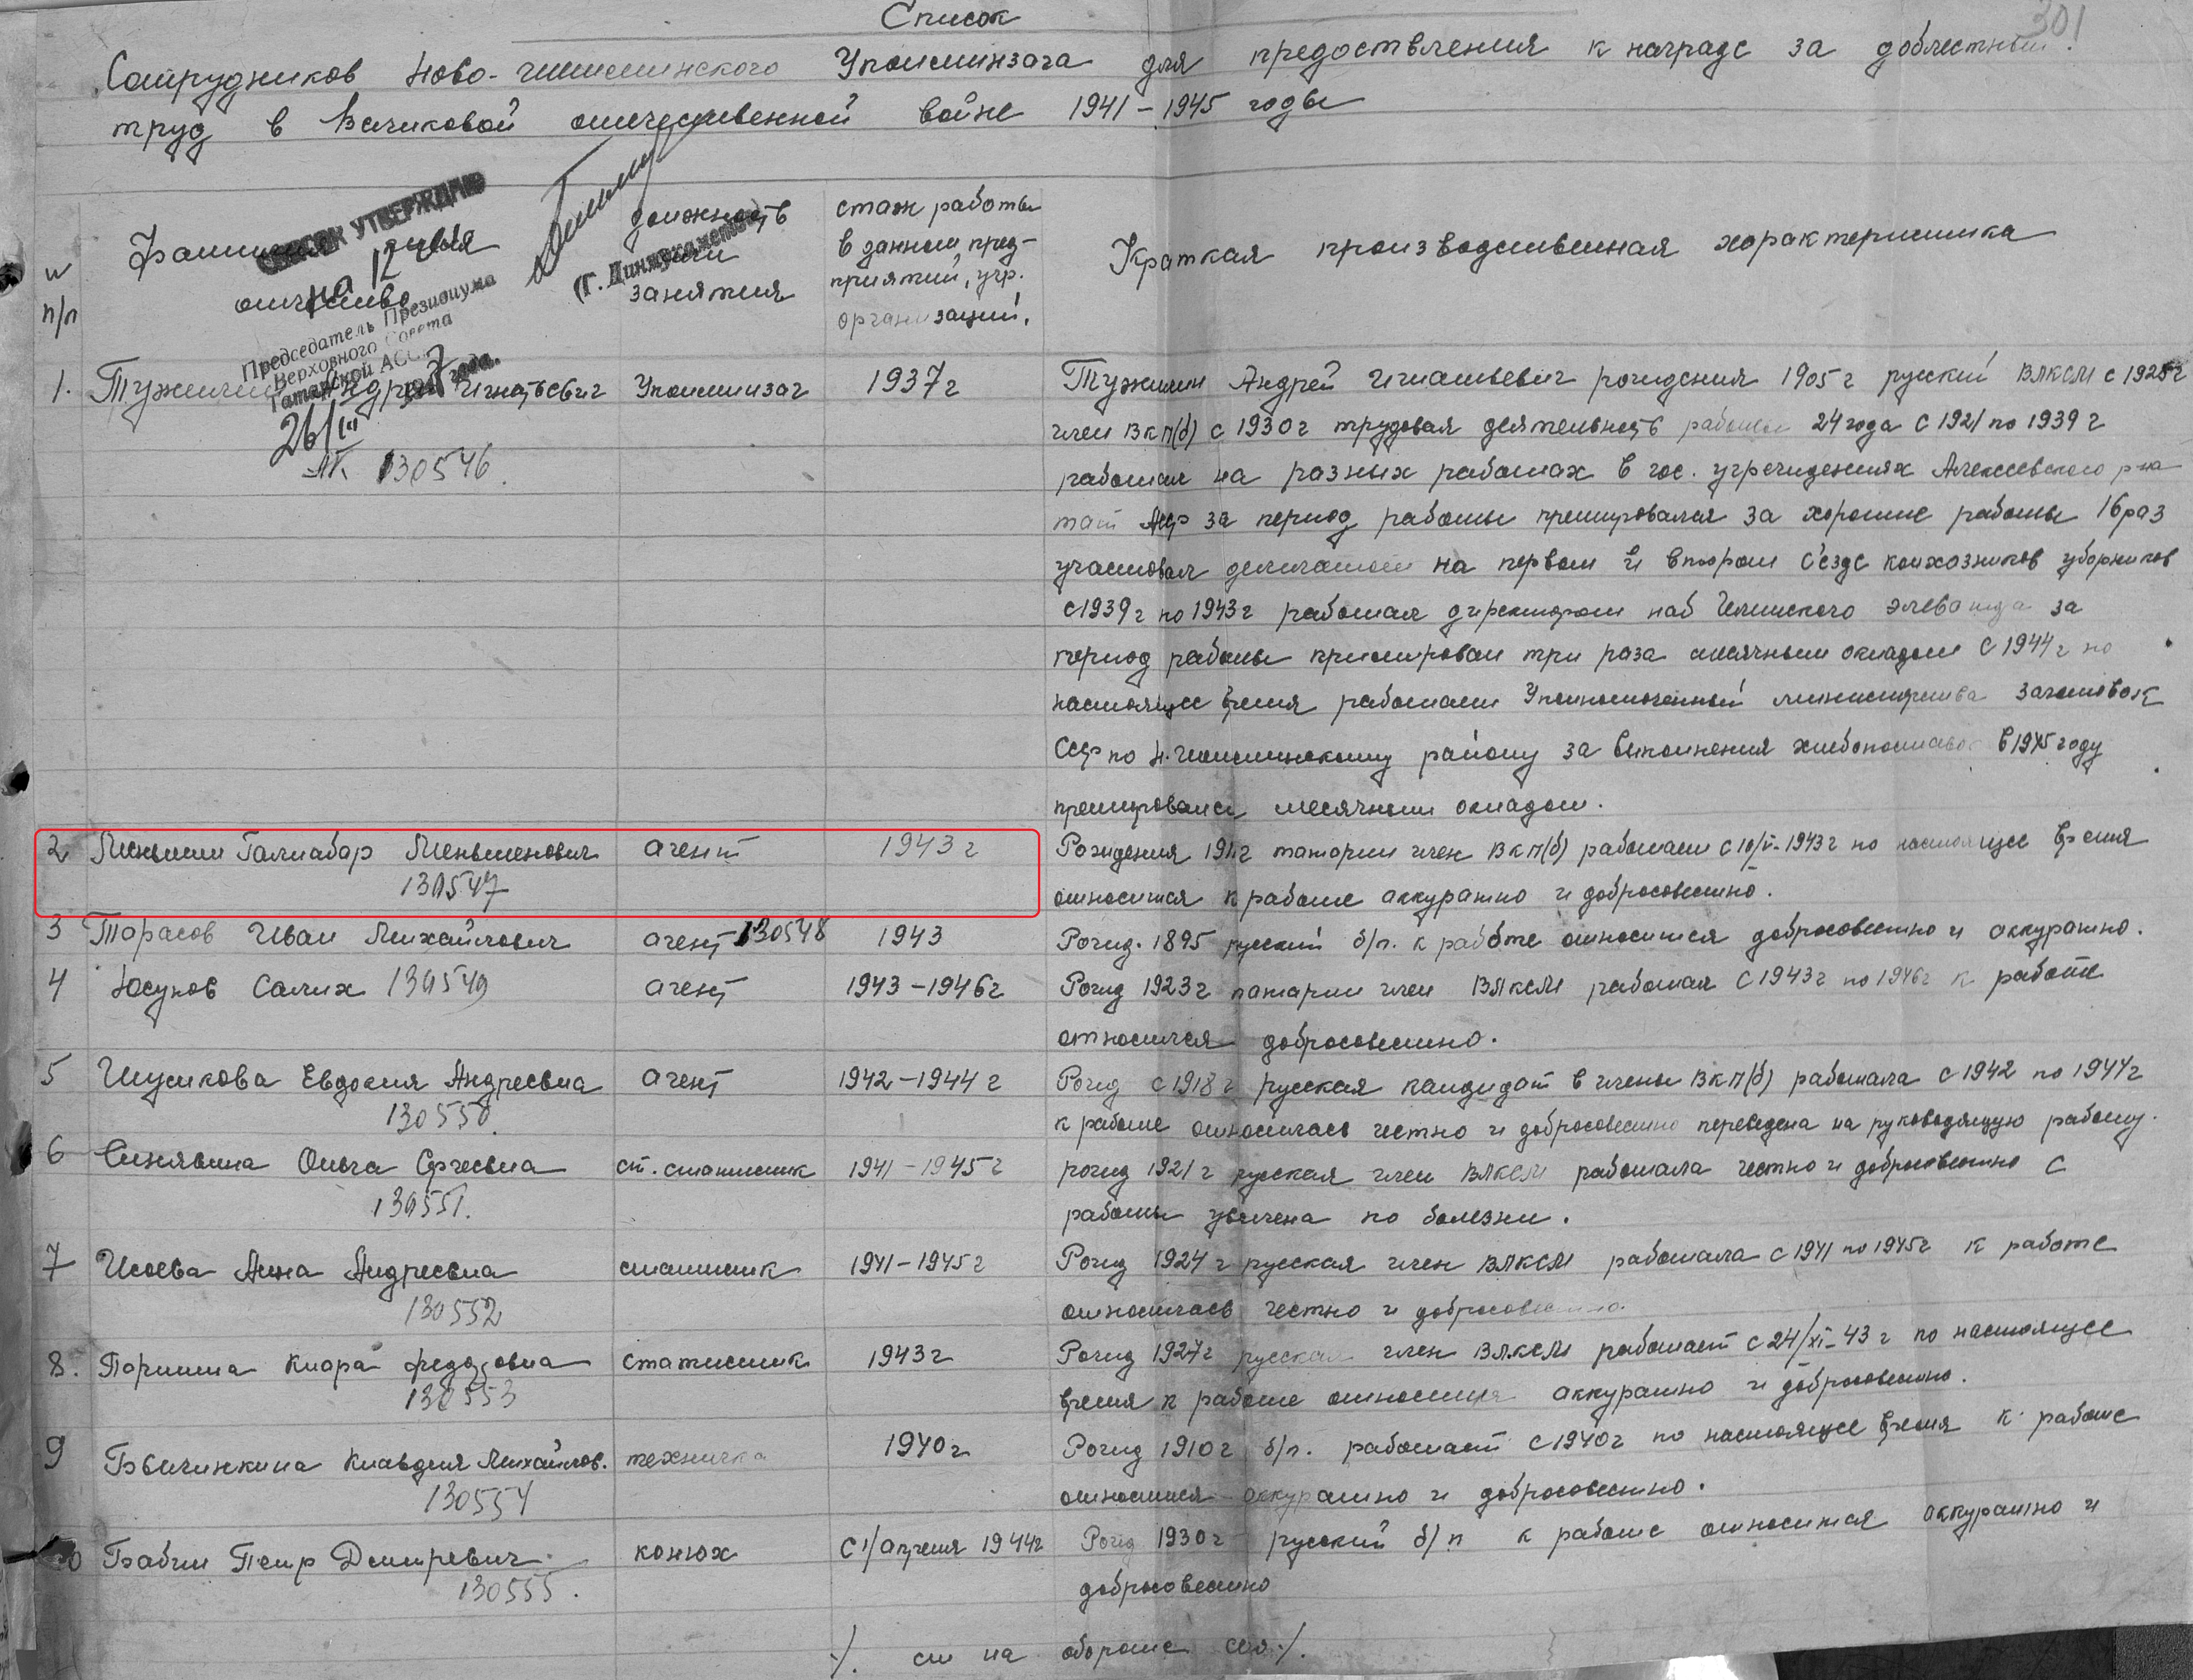 Список
301
Сотрудников Ново-Шешминского Уполминзага для предоствления к награде за доблестный
труд в Великовой отечественной войне 1941-1945 годы
СПИСОК УТВЕРЖДАЮ
на 12 чел
Председатель Президиума
Верховного Совета
Татарской АССР
26/III 1947 года.
(Г. Динмухаметов)
№ п/п
Фамилия имя отчество
должность или занятия
стаж работы в данном пред-приятий, учр. организаций.
Краткая производственная характеристика
1. Тужилин Андрей Игнатьевич Уполминзаг 1937г Тужилин Андрей Игнатьевич рождения 1905г русский ВЛКСМ с 1925г
член ВКП(б) с 1930г трудовая деятельность работы 24 года с 1921 по 1939г
АК 130546.
работал на разных работах в гос. учреждениях Алексеевского р-на
тат АССР за период работы премировался за хорошие работы 16 раз
участвовал делегатом на первом и втором с'езде колхозников ударников
с 1939г по 1943г работал директором наб Челнского элеватора за
период работы примирован три раза месячным окладом с 1944г по
настоящее время работает Уполномоченный министерства заготовок
ССР по Н.Шешминскому району за выполнения хлебопоставок в 1945 году
премировался месячным окладом.
2 Меньшин Галиабар Меньшенович агент 1943г Рождения 1911г татарин член ВКП(б) работает с 10/V-1943г по настоящее время
130547
относится к работе аккуратно и добросовестно.
3 Тарасов Иван Михайлович агент 130548 1943 Рожд. 1895 русский б/п. к работе относится добросовестно и аккуратно.
4 Юсупов Салих 130549 агент 1943-1946г Рожд 1923г татарин член ВЛКСМ работал с 1943г по 1946г к работе
относился добросовестно.
5 Шушкова Евдокия Андреевна агент 1942-1944г Рожд с 1918г русская кандидат в члены ВКП(б) работала с 1942 по 1944г
130550.
к работе относилась честно и добросовестно переведена на руководящую работу.
6 Синявина Ольга Сергеевна ст. статистик 1941-1945г рожд 1921г русская член ВЛКСМ работала честно и добросовестно с
130551.
работы уволена по болезни.
7 Исаева Анна Андреевна статистик 1941-1945г Рожд 1924г русская член ВЛКСМ работала с 1941 по 1945г к работе
130552
относилась честно и добросовестно.
8. Паршина Клара Федоровна статистик 1943г Рожд 1927г русская член ВЛКСМ работает с 24/XI-43г по настоящее
130553
время к работе относится аккуратно и добросовестно.
9 Бычинкина Клавдия Михайлов. техничка 1940г Рожд 1910г б/п. работает с 1940г по настоящее время к работе
130554
относится аккуратно и добросовестно.
10 Бабин Петр Дмитревич. конюх с 1/апреля 1944г Рожд 1930г русский б/п к работе относится аккуратно и
130555.
добросовестно
./. см на обороте ./.